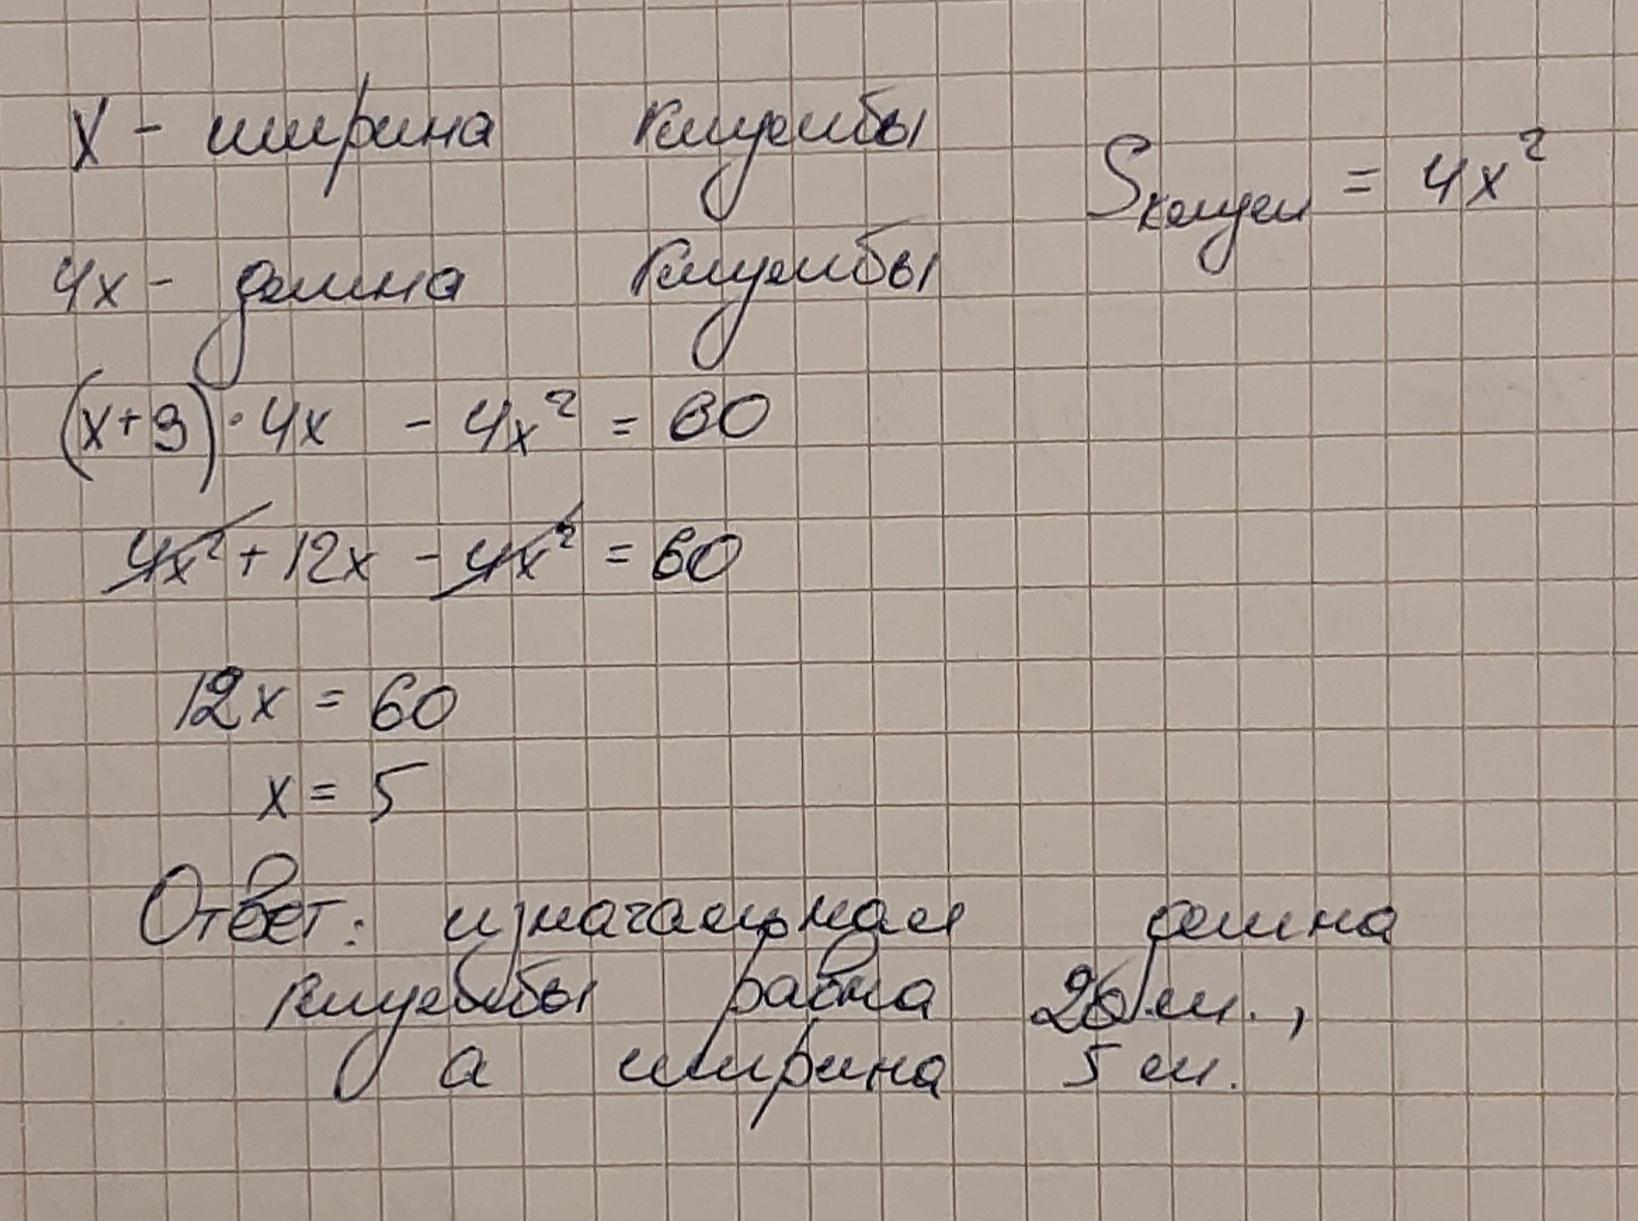 x - ширина клумбы
Sклум = 4x²
4x - длина клумбы
(x+3)·4x - 4x² = 60
4x² + 12x - 4x² = 60
12x = 60
x = 5
Ответ: изначальная длина
клумбы равна 20 м.,
а ширина 5 м.